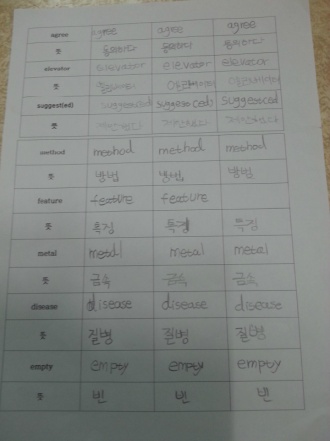 agree agree agree agree
뜻 동의하다 동의하다 동의하다
elevator elevator elevator elevator
뜻 엘리베이터 엘리베이터
suggest(ed) suggest(ed) suggest(ed) suggest(ed)
뜻 제안하다 제안하다 제안하다
method method method method
뜻 방법 방법 방법
feature feature feature
뜻 특징 특징 특징
metal metal metal metal
뜻 금속 금속 금속
disease disease disease disease
뜻 질병 질병 질병
empty empty empty empty
뜻 빈 빈 빈